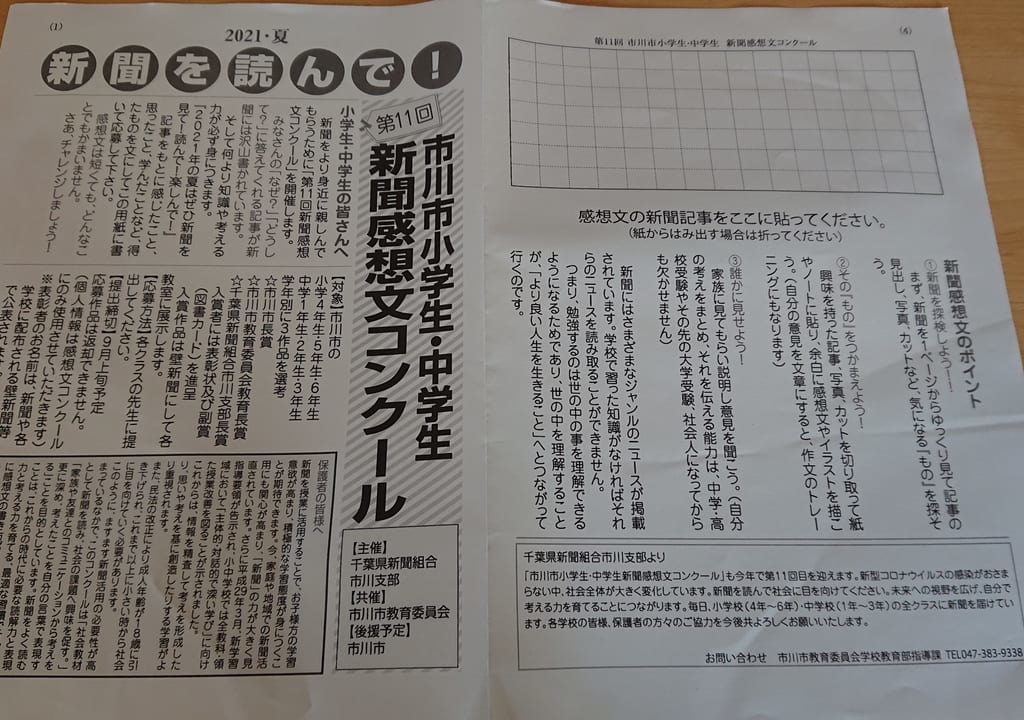 (1)
2021・夏
新聞を読んで！
第11回
市川市小学生・中学生
新聞感想文コンクール
小学生・中学生の皆さんへ
新聞をより身近に親しんで
もらうために「第11回新聞感想
文コンクール」を開催します。
みなさんの「なぜ？」「どうし
て？」に答えてくれる記事が新
聞には沢山書かれています。
そして何より知識や考える
力が必ず身につきます。
「2021年の夏はぜひ新聞を
見て！読んで！楽しんで！」
記事をもとに感じたこと、
思ったこと、学んだことなど、得
たものを文にしてこの用紙に書
いて応募して下さい。
感想文は短くても、どんなこ
とでもかまいません。
さあ、チャレンジしましょう！
【対象】市川市の
小学4年生・5年生・6年生
中学1年生・2年生・3年生
学年別に3作品を選考
☆市川市長賞
☆市川市教育委員会教育長賞
☆千葉県新聞組合市川支部長賞
入賞者には表彰状及び副賞
（図書カード）を進呈
入賞作品は壁新聞にして各
教室に展示します。
【応募方法】各クラスの先生に提
出してください。
【提出締切】9月上旬予定
応募作品は返却できません。
（個人情報は感想文コンクール
にのみ使用させていただきます）
※表彰者のお名前は、新聞や各
学校に配布される壁新聞等
で公表されます
保護者の皆様へ
新聞を授業に活用することで、お子様方の学習
意欲が高まり、積極的な学習態度が身につくこ
とが期待できます。今、家庭や地域での新聞活
用にも関心が高まり、「新聞」の力が大きく見
直されています。さらに平成29年3月、新学習
指導要領が告示され、小中学校では全教科・領
域において「主体的・対話的で深い学び」に向け
た授業改善を図ることが示されました。
これからは、情報を精査して考えを形成した
り、思いや考えを基に創造したりする学習がよ
り重視されます。
また、民法の改正により成人年齢が18歳に引
き下げられ、これまで以上に小さい時から社会
に目を向けていく必要があります。
このように、ますます新聞活用の必要性が高
まっているなかで、このコンクールは「社会教材
として新聞を読み、社会の課題へ興味を促す。」
「家族や友達とのコミュニケーションから考えを
更に深め、考えたことを自分の言葉で表現す
ること」を目的としています。新聞をよく読む
ことは、これからの時代に必要な読解力と表現
力と考える力を育てる、最適な
【主催】
千葉県新聞組合
市川支部
【共催】
市川市教育委員会
【後援予定】
市川市
(4)
第11回 市川市小学生・中学生 新聞感想文コンクール
感想文の新聞記事をここに貼ってください。
（紙からはみ出す場合は折ってください）
新聞感想文のポイント
①新聞を探検しよう！
まず、新聞を一ページからゆっくり見て記事の
見出し、写真、カットなど、気になる「もの」を探そ
う。
②その「もの」をつかまえよう！
興味を持った記事、写真、カットを切り取って紙
やノートに貼り、余白に感想文やイラストを描こ
う。（自分の意見を文章にすると、作文のトレー
ニングにもなります）
③誰かに見せよう！
家族に見てもらい説明し意見を聞こう。（自分
の考えをまとめ、それを伝える能力は、中学・高
校受験やその先の大学受験、社会人になってから
も欠かせません）
新聞にはさまざまなジャンルのニュースが掲載
されています。学校で習った知識がなければそれ
らのニュースを読み取ることができません。
つまり、勉強するのは世の中の事を理解できる
ようになるためであり、世の中を理解すること
が、「より良い人生を生きること」へとつながって
行くのです。
千葉県新聞組合市川支部より
「市川市小学生・中学生新聞感想文コンクール」も今年で第11回目を迎えます。新型コロナウイルスの感染がおさま
らない中、社会全体が大きく変化しています。新聞を読んで社会に目を向けてください。未来への視野を広げ、自分で
考える力を育てることにつながります。毎日、小学校（4年〜6年）・中学校（1年〜3年）の全クラスに新聞を届けていま
す。各学校の皆様、保護者の方々のご協力を今後共よろしくお願いいたします。
お問い合わせ 市川市教育委員会学校教育部指導課 TEL047-383-9338